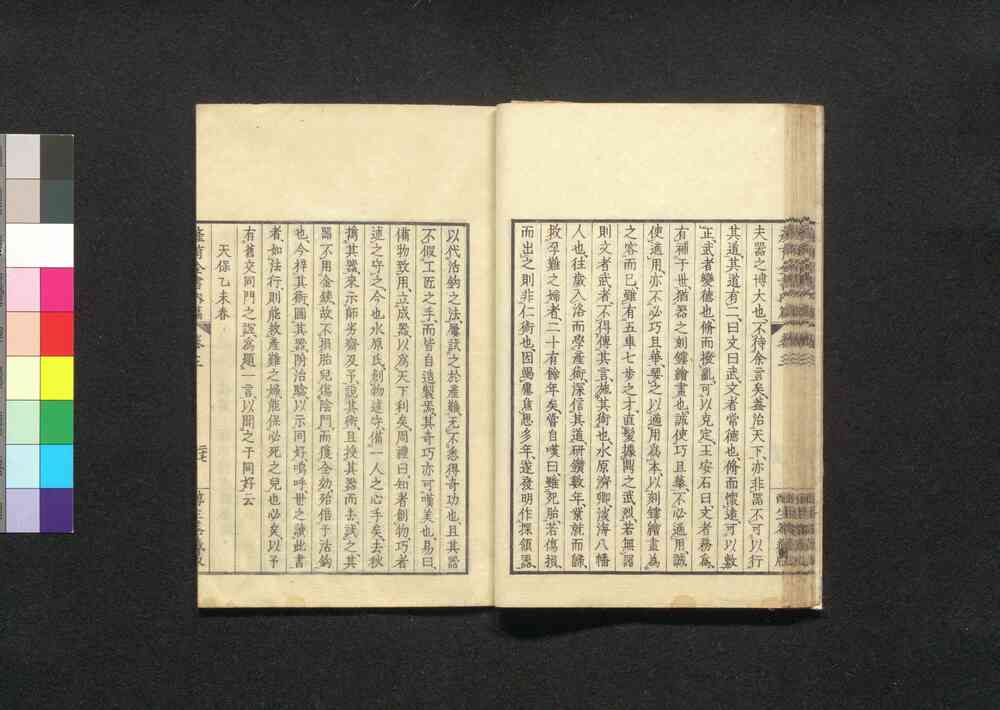 夫器之博大也不待余言矣蓋治天下亦非器不可以行
其道其道有二曰文曰武文者常德也脩而懷遠可以敷
正武者變德也脩而撥亂可以克定王安石曰文者務爲
有補于世猶器之刻鏤繪畫也誠使巧且華不必適用誠
使適用亦不必巧且華要之以適用爲本以刻鏤繪畫爲
之容而已雖有五車七步之才直髮據鬪之武烈若無器
則文者武者不得傳其言施其術也水原濟卿淡海八幡
人也往歲入洛而學產術深信其道研鑽數年業就而歸
救孕難之婦者二十有餘年矣嘗自嘆曰雖死胎若傷損
而出之則非仁術也因竭慮焦思多年遂發明作探頷器
以代活鉤之法屢試之於產難无不悉得奇功也且其器
不假工匠之手而皆自造製焉其奇巧亦可嘆美也易曰
備物致用立成器以爲天下利矣周禮曰知者創物巧者
述之守之今也水原氏創物述守備一人之心手矣去秋
携其器來示師劣齋及予說其術且授其器而去試之其
器不用金鐵故不損胎兒傷陰門而獲全効殆倍于活鉤
也今梓其術圖其器附治驗以示同好嗚呼世之讀此書
者如法行則能救產難之婦能保必死之兒也必矣以予
有舊交同門之誼爲題一言以聞之于同好云
天保乙未春
產育全書內篇 卷三